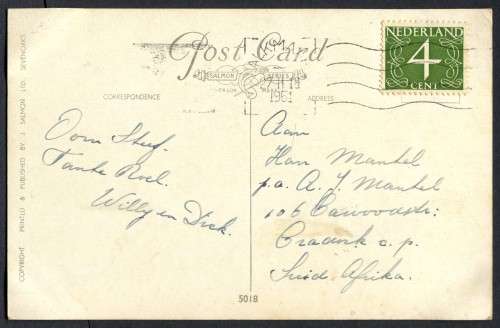 Post Card
SALMON SERIES
NEDERLAND
4
CENT
1961
CORRESPONDENCE
ADDRESS
Oom Stef.
Tante Roel.
Willy en Dick.
Aan
Han Mantel
p.a. A. J. Mantel
106 Cawoodstr:
Cradock c.p.
Suid Afrika.
COPYRIGHT PRINTED & PUBLISHED BY J. SALMON LTD. SEVENOAKS
5018